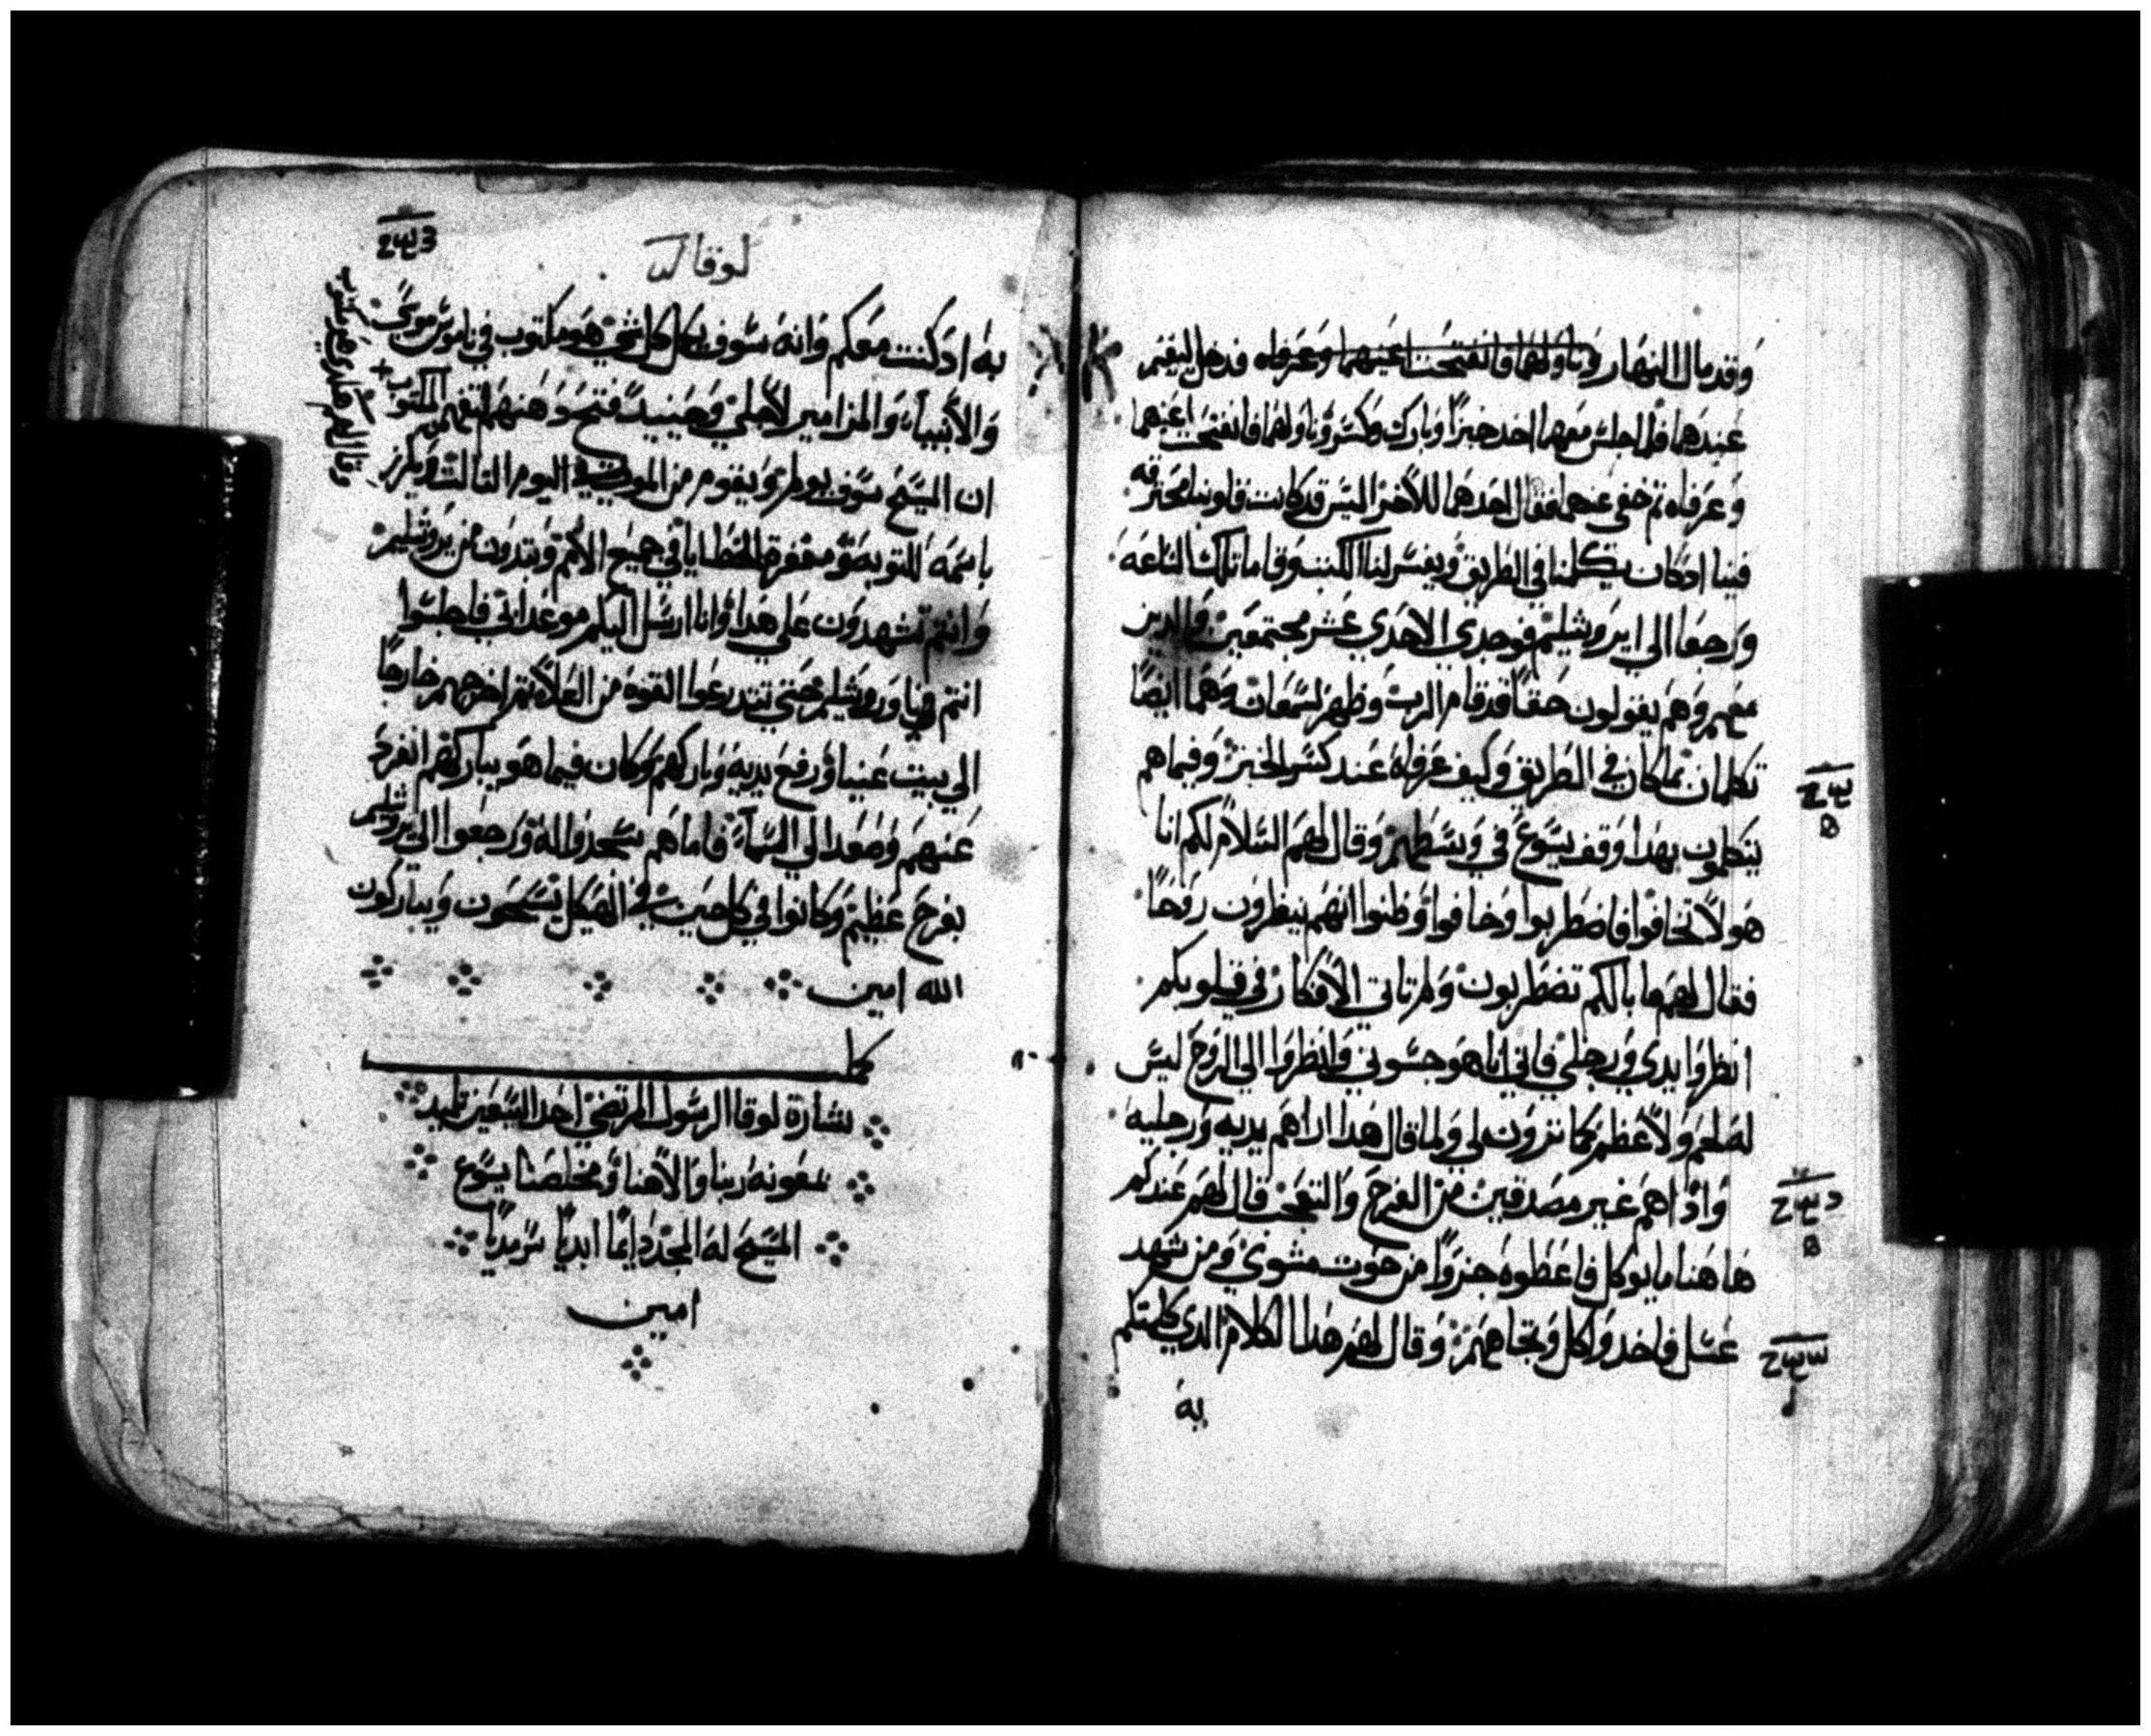 وقد مال النهار وناولهما فانفتحت اعينهما وعرفاه فدخل ليقيم
عندهما فلما جلس معهما اخد خبزًا وبارك وكسر وناولهما فانفتحت اعينهما
وعرفاه تم خفي عنهما فقال احدهما للاخر اليس قد كانت قلوبنا محترقه
فينا ادكان يكلمنا في الطريق ويفسر لنا الكتب وقاما تلك الساعه
ورجعا الي ايروشليم فوجدي الاحدي عشر مجتمعين والدين
معهم وهم يقولون حقًا قد قام الرب وظهر لسمعان وهما ايضًا
تكلمان بما كان في الطريق وكيف عرفاه عند كسر الخبز وفيما هم
يتكلمون بهدا وقف يسوع في وسطهم وقال لهم السلام لكم انا
هو لا تخافوا فاضطربوا وخافوا وظنوا انهم ينظرون روحًا
فقال لهم ما بالكم تضطربون ولم تاتي الافكار في قلوبكم
انظروا يدي ورجلي فاني انا هو جسوني وانظروا الي الروح ليس
له لحم ولا عظم كما ترون لي ولما قال هدا اراهم يديه ورجليه
واد اهم غير مصدقين من الفرح والتعجب قال لهم عندكم
هاهنا ما يوكل فاعطوه جزوًا من حوت مشوي ومن شهد
عسل فاخد واكل وتجاههم وقال لهم هدا الكلام الدي كلمتكم
به
لوقا
به ادكنت معكم وانه سوف يكمل كل شي هو مكتوب في ناموس موسي
والانبياء والمزامير لاجلي وحينيد فتح دهنهم ليفهموا المكتوب
وقال لهم
ان المسيح سوف يولم ويقوم من الموت في اليوم التالت ويكرز
باسمه للتوبه ومغفرة الخطايا في جميع الامم وتبدون من يروشليم
وانتم تشهدون علي هدا وانا ارسل اليكم موعد ابي فاجلسوا
انتم في اوروشليم حتي تتدرعوا القوة من العلاء تم اخرجهم خارجًا
الي بيت عنيا ورفع يديه وباركهم وكان فيما هو يباركهم انفرد
عنهم وصعد الي السماء فاما هم سجدوا له ورجعوا الي يروشليم
بفرح عظيم وكانوا في كل حين في الهيكل يسبحون ويباركون
الله امين
كمل
بشارة لوقا الرسول المرتضي احد السبعين تلميد
بمعونة ربنا والاهنا ومخلصنا يسوع
المسيح له المجد دايمًا ابديًا سرمديًا
امين